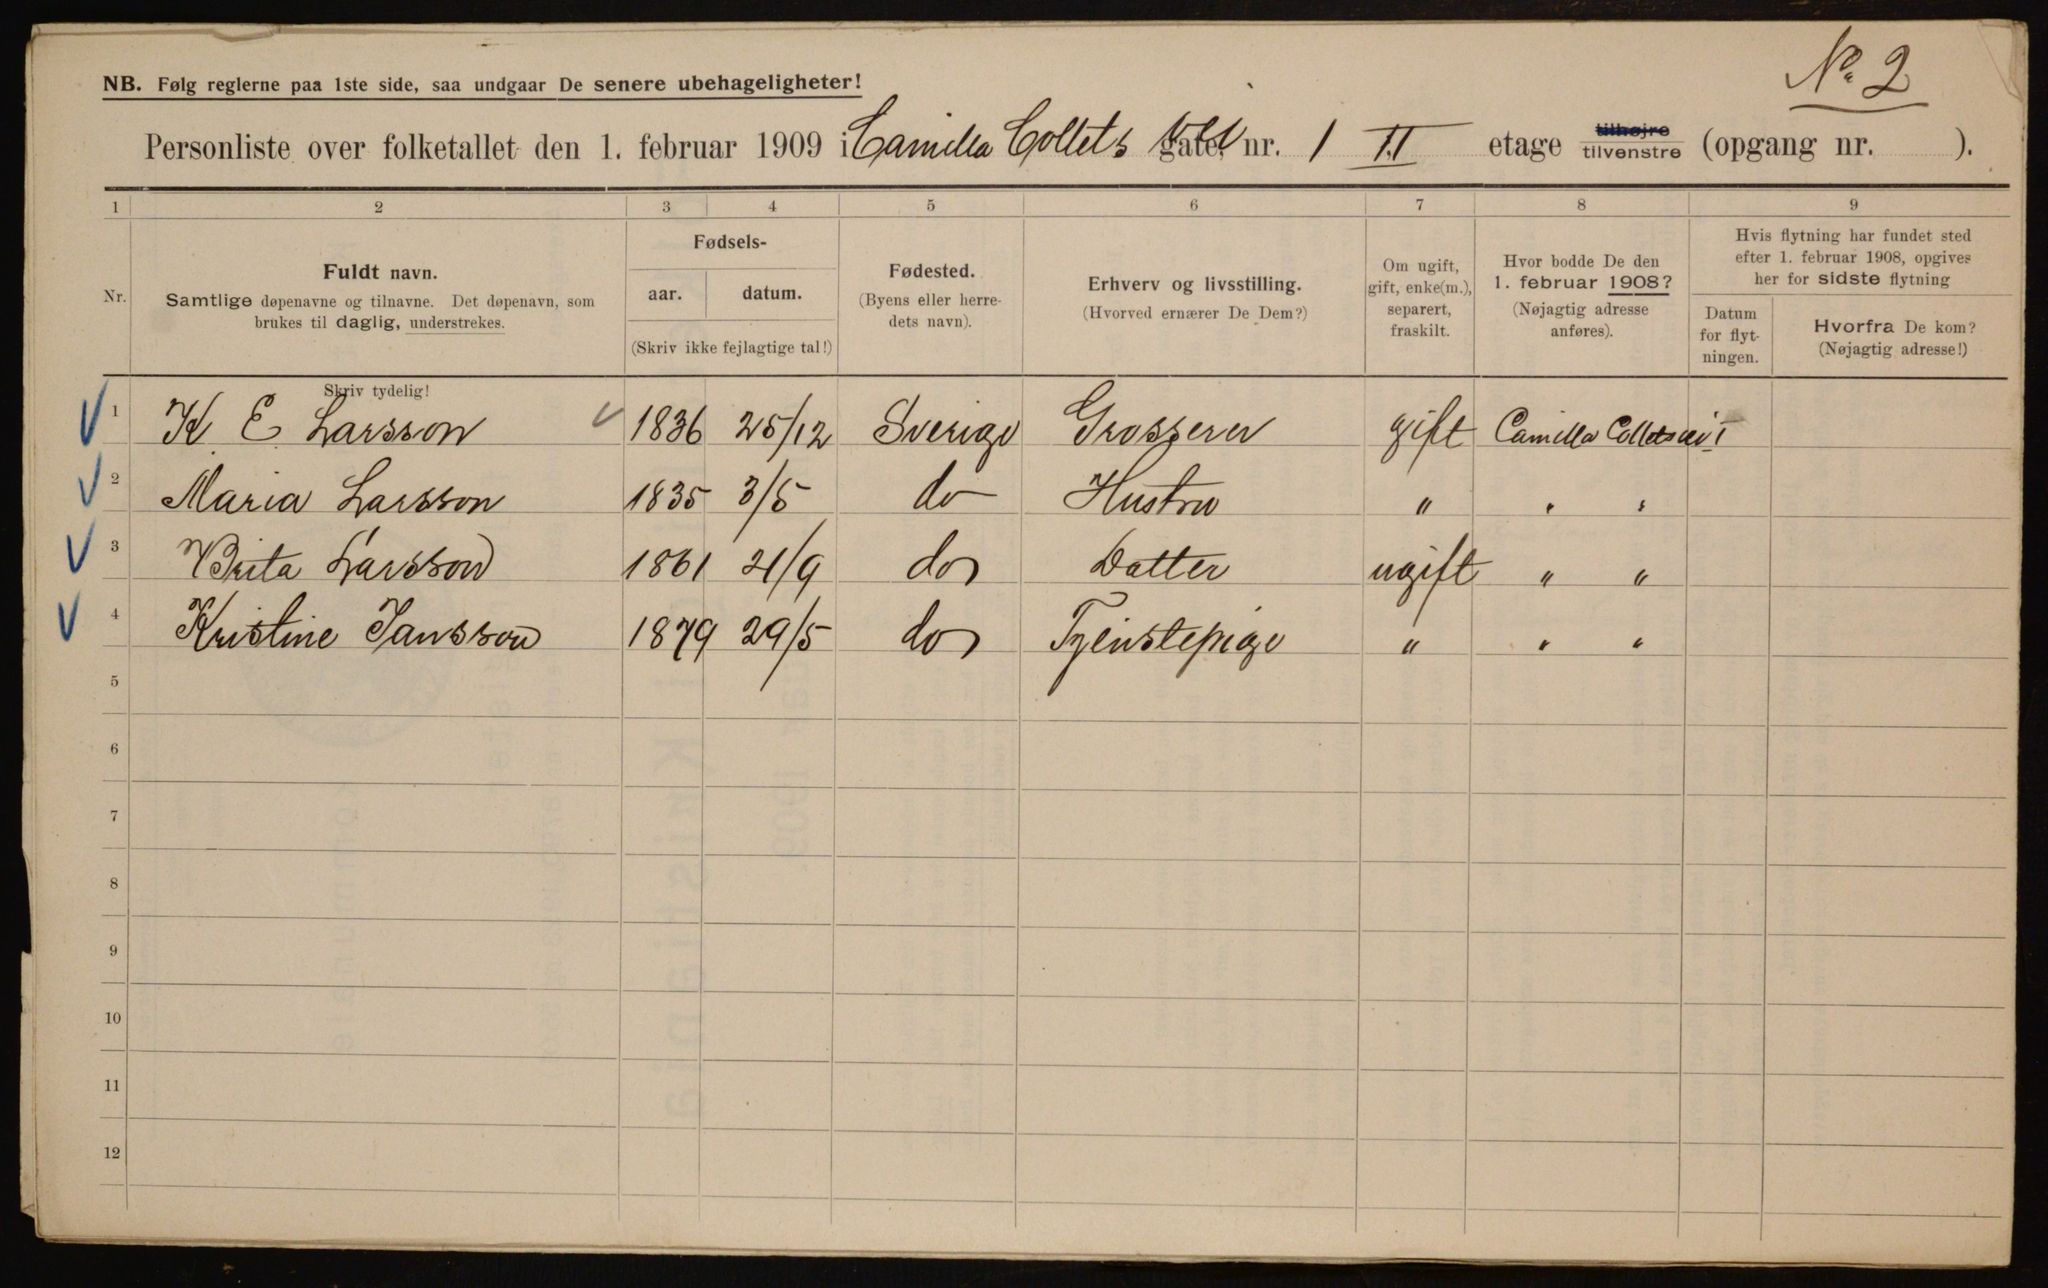 No. 2
NB. Følg reglerne paa 1ste side, saa undgaar De senere ubehageligheter!
Personliste over folketallet den 1. februar 1909 i Camilla Collets vei nr. 1 II etage tilhøjre tilvenstre (opgang nr. ).
1 2 3 4 5 6 7 8 9
Nr.
Fuldt navn.
Samtlige døpenavne og tilnavne. Det døpenavn, som
brukes til daglig, understrekes.
Skriv tydelig!
Fødsels-
aar. datum.
(Skriv ikke fejlagtige tal!)
Fødested.
(Byens eller herre-
dets navn).
Erhverv og livsstilling.
(Hvorved ernærer De Dem?)
Om ugift,
gift, enke(m.),
separert,
fraskilt.
Hvor bodde De den
1. februar 1908?
(Nøjagtig adresse
anføres).
Hvis flytning har fundet sted
efter 1. februar 1908, opgives
her for sidste flytning
Datum
for flyt-
ningen.
Hvorfra De kom?
(Nøjagtig adresse!)
1 K E Larsson 1836 25/12 Sverige Grosserer gift Camilla Collets vei 1
2 Maria Larsson 1835 3/5 do Hustru " " "
3 Brita Larsson 1861 21/9 do Datter ugift " "
4 Kristine Jansson 1879 29/5 do Tjenstepige " " "
5
6
7
8
9
10
11
12